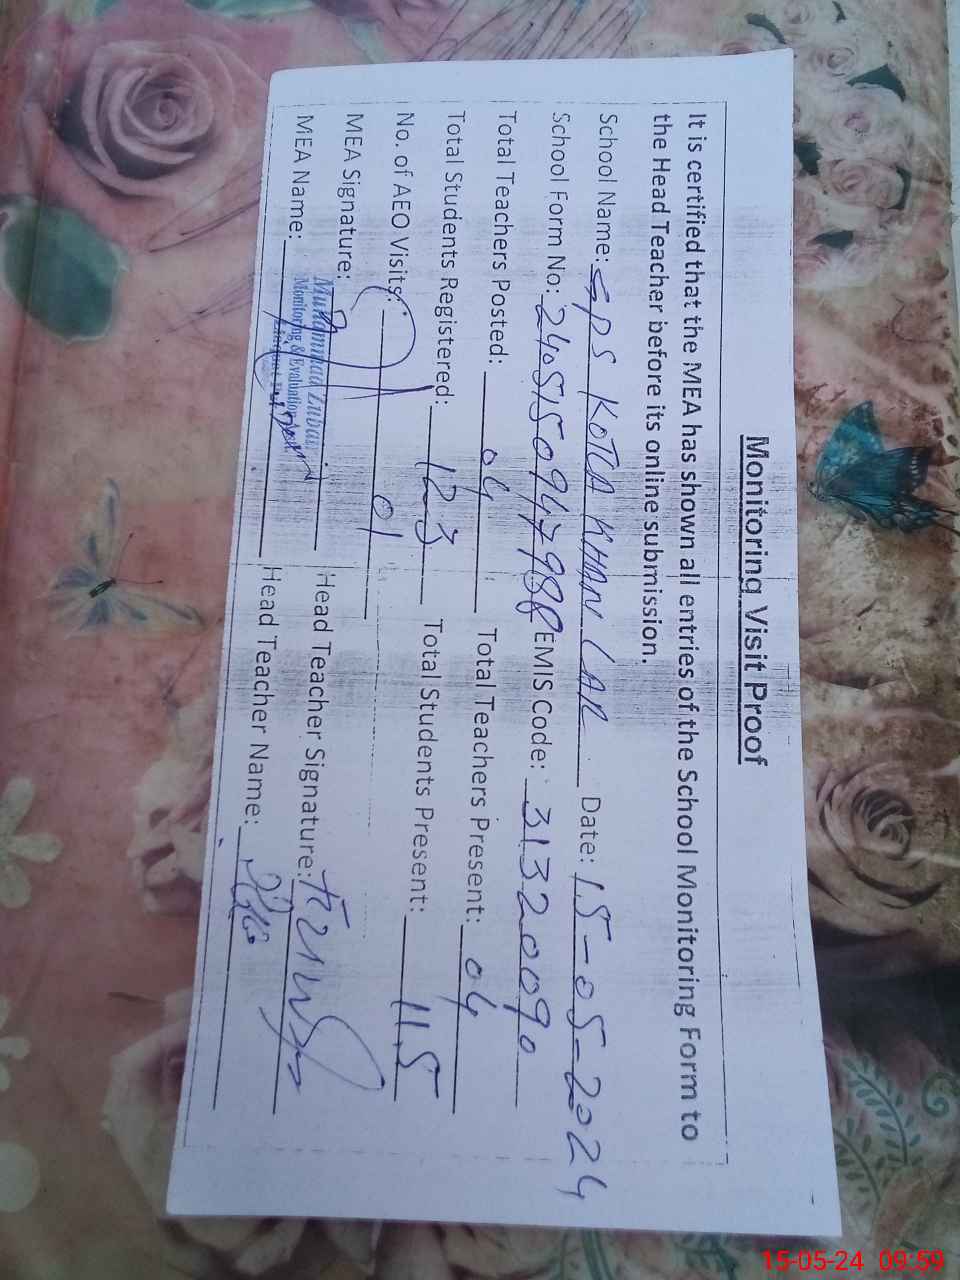 Monitoring Visit Proof
It is certified that the MEA has shown all entries of the School Monitoring Form to
the Head Teacher before its online submission.
School Name: GPS KOTLA KHAN LAR Date: 15-05-2024
School Form No: 245150947988 EMIS Code: 31320090
Total Teachers Posted: 04 Total Teachers Present: 04
Total Students Registered: 123 Total Students Present: 115
No. of AEO Visits: 01
MEA Signature: Head Teacher Signature:
Muhammad Zubair
Monitoring & Evaluation
MEA Name: Head Teacher Name:
15-05-24 09:59